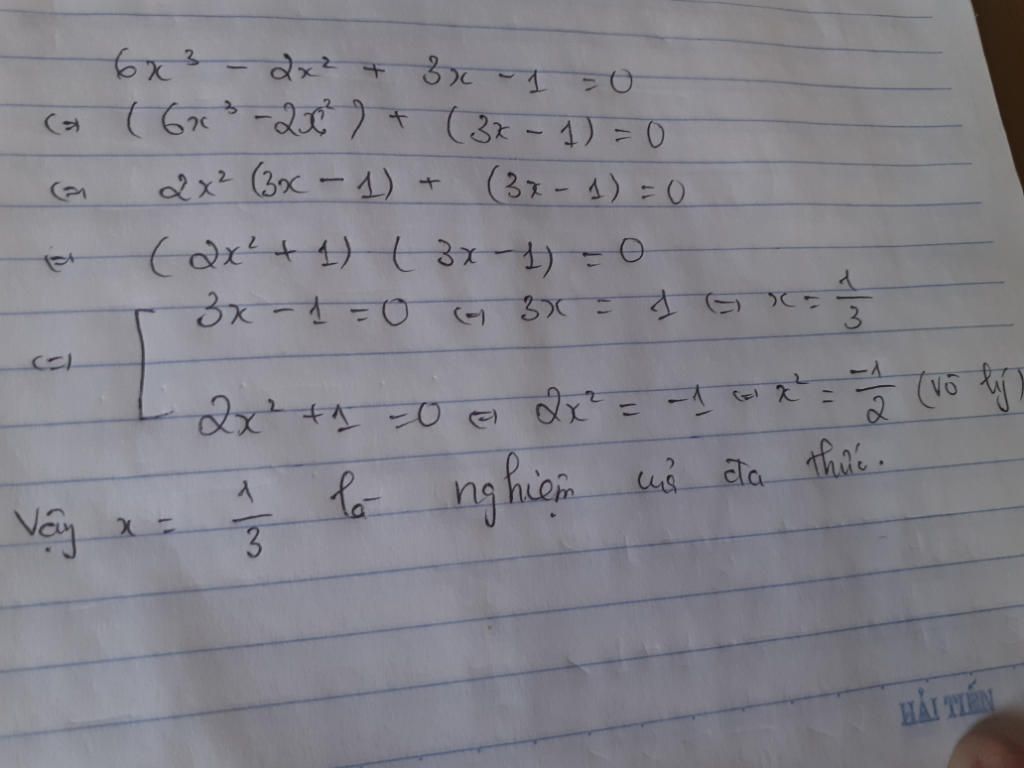 6x³ - 2x² + 3x - 1 = 0
⇔ (6x³ - 2x²) + (3x - 1) = 0
⇔ 2x² (3x - 1) + (3x - 1) = 0
⇔ (2x² + 1) (3x - 1) = 0
⇔ [ 3x - 1 = 0 ⇔ 3x = 1 ⇔ x = 1/3
2x² + 1 = 0 ⇔ 2x² = -1 ⇔ x² = -1/2 (vô lý)
Vậy x = 1/3 là nghiệm của đa thức.
HẢI TIẾN